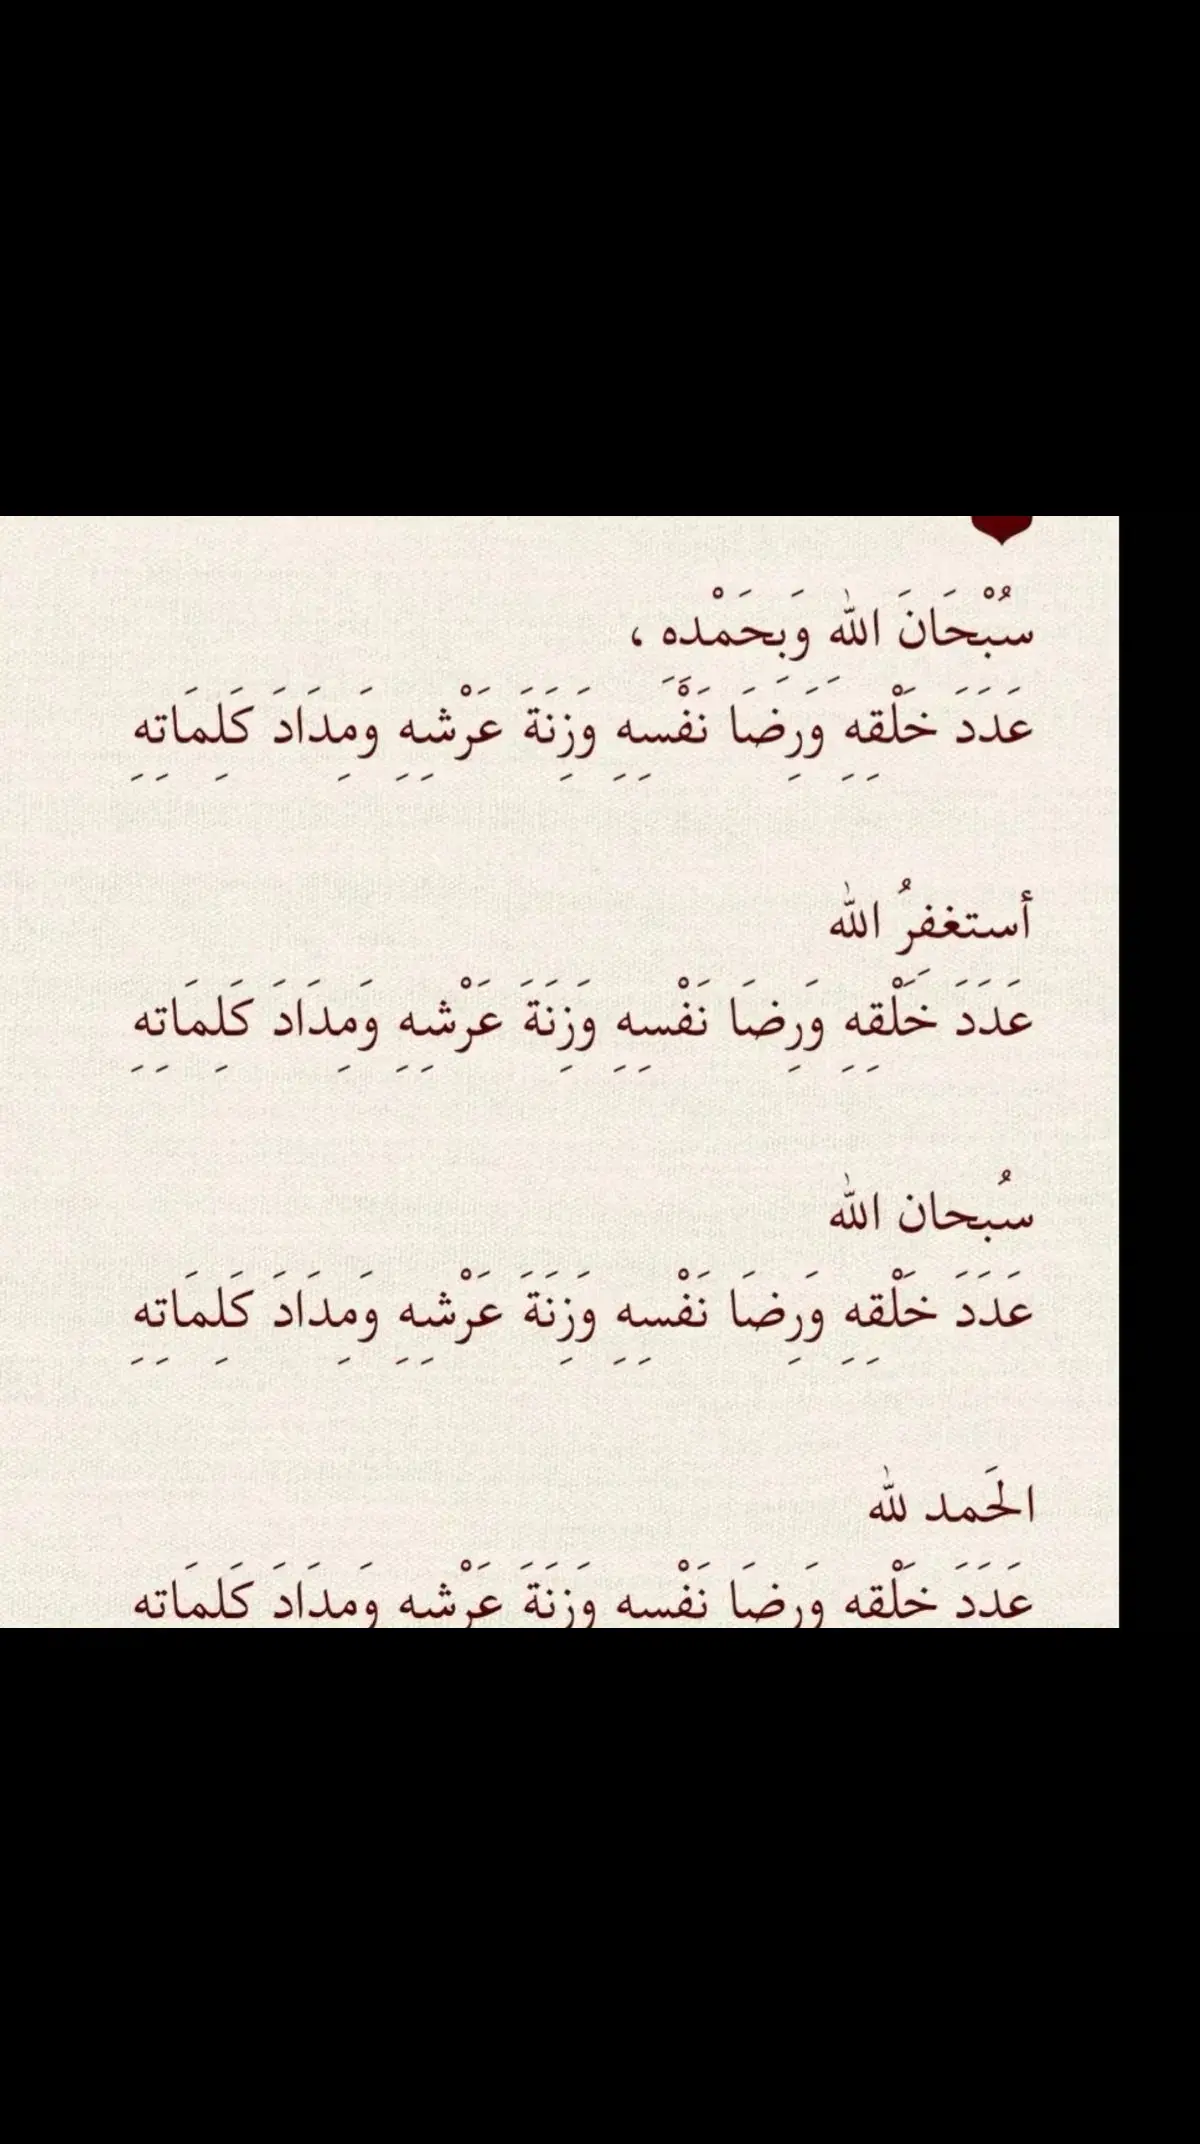 سُبْحَانَ اللهِ وَبِحَمْدِهِ ،
عَدَدَ خَلْقِهِ وَرِضَا نَفْسِهِ وَزِنَةَ عَرْشِهِ وَمِدَادَ كَلِمَاتِهِ
أستغفرُ الله
عَدَدَ خَلْقِهِ وَرِضَا نَفْسِهِ وَزِنَةَ عَرْشِهِ وَمِدَادَ كَلِمَاتِهِ
سُبحان الله
عَدَدَ خَلْقِهِ وَرِضَا نَفْسِهِ وَزِنَةَ عَرْشِهِ وَمِدَادَ كَلِمَاتِهِ
الحَمد لله
عَدَدَ خَلْقه وَرضَا نَفْسه وَزنَةَ عَرْشه وَمدَادَ كَلمَاته